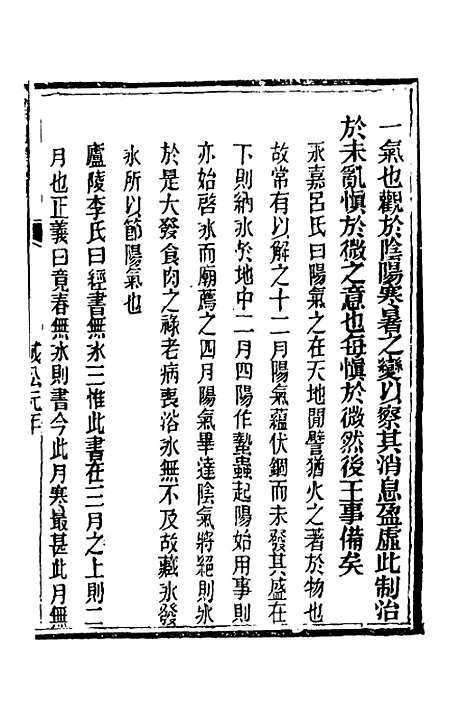 一氣也觀於陰陽寒暑之變以察其消息盈虛此制治
於未亂愼於微之意也每愼於微然後王事備矣
永嘉呂氏曰陽氣之在天地閒譬猶火之著於物也
故常有以解之十二月陽氣蘊伏錮而未發其盛在
下則納冰於地中二月四陽作蟄蟲起陽始用事則
亦始啓冰而廟薦之四月陽氣畢達陰氣將絕則冰
於是大發食肉之祿老病喪浴冰無不及故藏冰發
冰所以節陽氣也
廬陵李氏曰經書無冰三惟此書在三月之上則二
月也正義曰竟春無冰則書今此月寒最甚此月無
成公元年